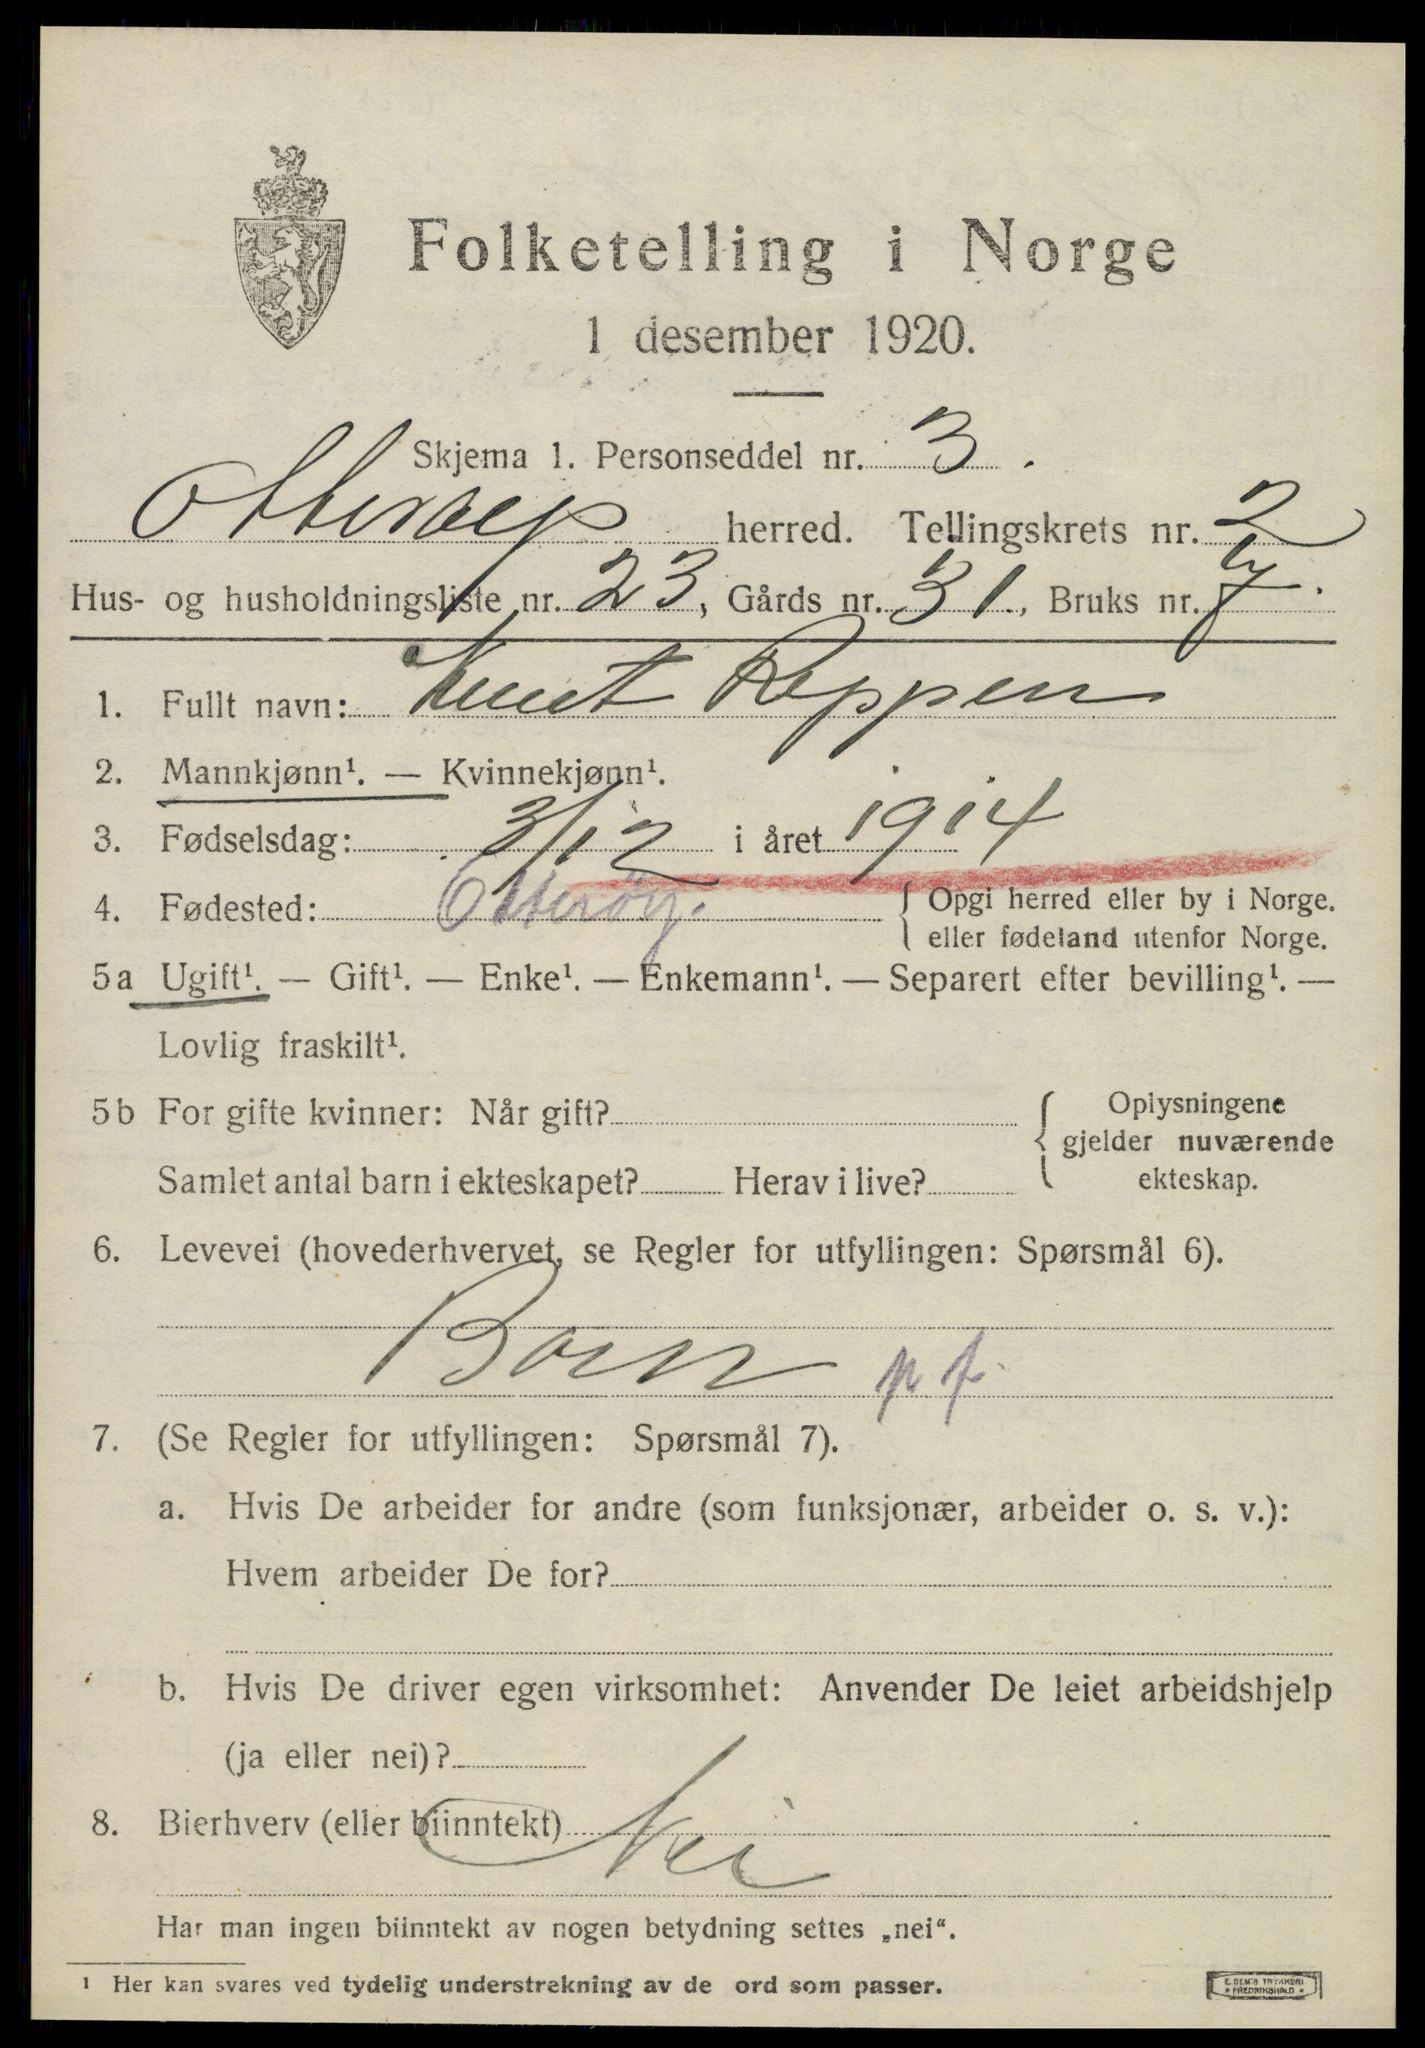 Folketelling i Norge
1 desember 1920.
Skjema 1. Personseddel nr. 3.
Otterøy herred. Tellingskrets nr. 2
Hus- og husholdningsliste nr. 23, Gårds nr. 31., Bruks nr. 7.
1. Fullt navn: Knut Reppen
2. Mannkjønn¹. — Kvinnekjønn¹.
3. Fødselsdag: 3/12 i året 1914
4. Fødested: Otterøy. { Opgi herred eller by i Norge.
eller fødeland utenfor Norge.
5a Ugift¹. — Gift¹. — Enke¹. — Enkemann¹. — Separert efter bevilling¹. —
Lovlig fraskilt¹.
5b For gifte kvinner: Når gift? { Oplysningene
gjelder nuværende
Samlet antal barn i ekteskapet? Herav i live? ekteskap.
6. Levevei (hovederhvervet, se Regler for utfyllingen: Spørsmål 6).
Barn p f.
7. (Se Regler for utfyllingen: Spørsmål 7).
a. Hvis De arbeider for andre (som funksjonær, arbeider o. s. v.):
Hvem arbeider De for?
b. Hvis De driver egen virksomhet: Anvender De leiet arbeidshjelp
(ja eller nei)?
8. Bierhverv (eller biinntekt) Nei
Har man ingen biinntekt av nogen betydning settes „nei“.
¹ Her kan svares ved tydelig understrekning av de ord som passer.
E. SEM'S TRYKKERI
* FREDRIKSHALD *